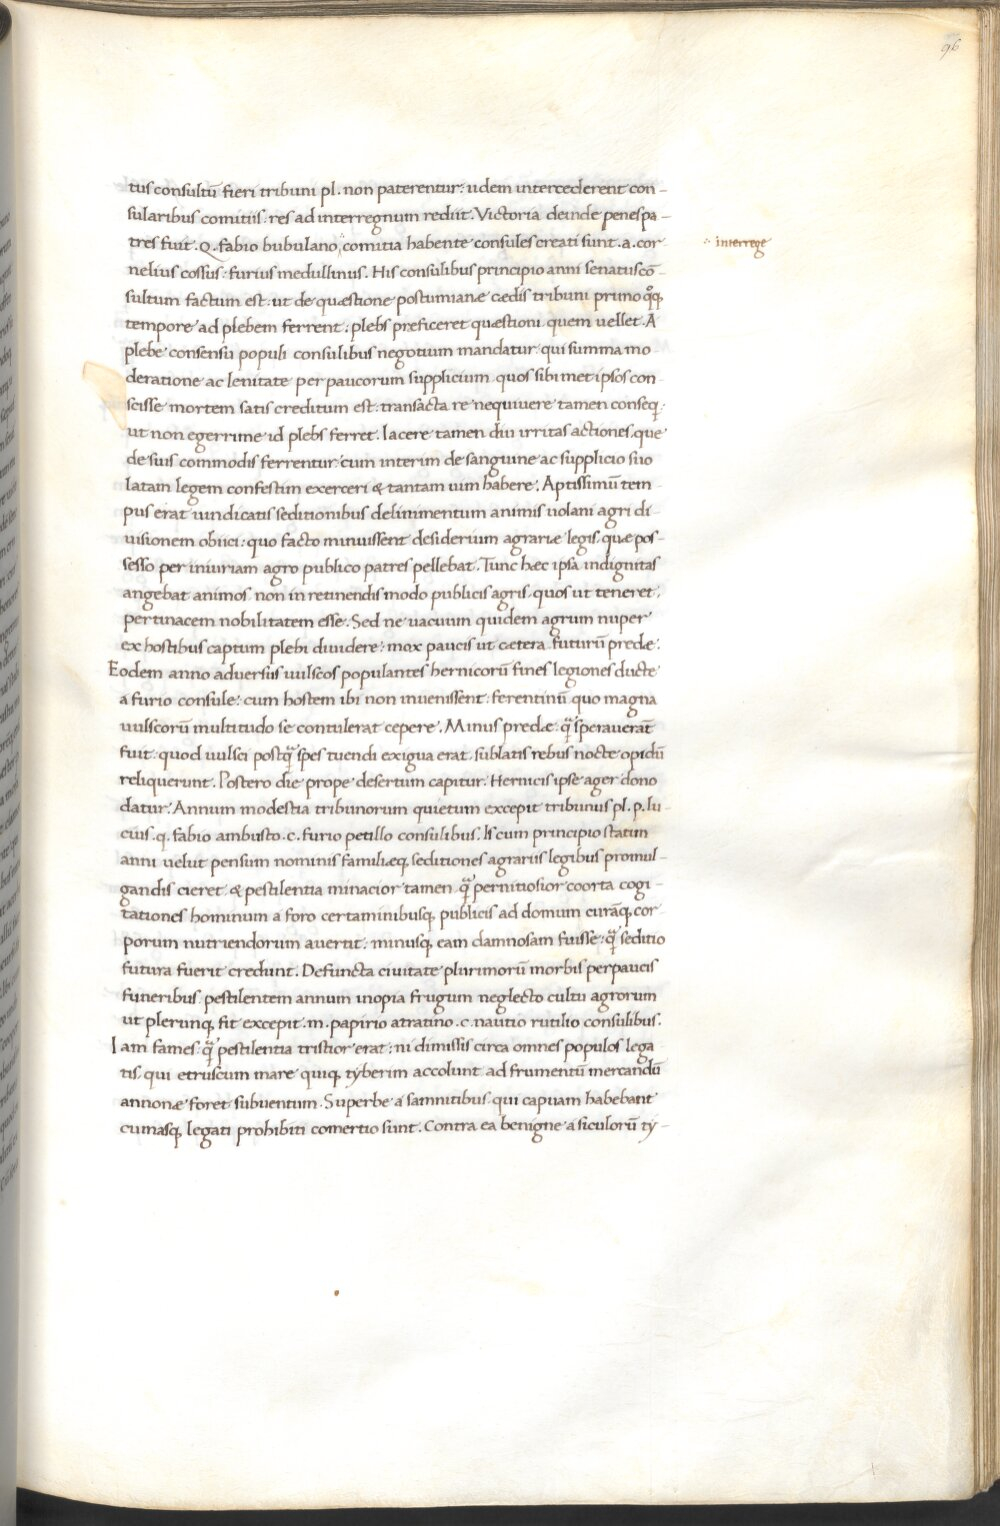 96
tus consultū fieri tribuni pl. non paterentur: iidem intercederent con-
sularibus comitiis. res ad interregnum rediit. Victoria deinde penes pa-
tres fuit. Q. fabio bubulano, comitia habente consules creati sunt. a. cor
interrege
nelius cossus: furius medullinus. His consulibus principio anni senatuscō-
sultum factum est: ut de quæstione postumianæ cædis tribuni primo q̊q;
tempore ad plebem ferrent: plebs preficeret quæstioni quem uellet. A
plebe consensu populi consulibus negotium mandatur qui summa mo
deratione ac lenitate per paucorum supplicium quos sibimet ipsos con
scisse mortem satis creditum est: transacta re nequiuere tamen conseq
ut non egerrime id plebs ferret. Iacere tamen diu irritas actiones, que
de suis commodis ferrentur cum interim de sanguine ac supplicio suo
latam legem confestim exerceri & tantam uim habere. Aptissimū tem
pus erat uindicatis seditionibus delinimentum animis uolani agri di
uisionem obiici: quo facto minuissent desiderium agrariæ legis. quæ pos-
sesso per iniuriam agro publico patres pellebat. Tunc hæc ipsa indignitas
angebat animos non in retinendis modo publicis agris. quos ui teneret.
pertinacem nobilitatem esse. Sed ne uacuum quidem agrum nuper
ex hostibus captum plebi diuidere: mox paucis ut cætera futurū predæ.
Eodem anno aduersus uulscos populantes hernicorū fines legiones ductę
a furio consule: cum hostem ibi non inuenissent: ferentinū quo magna
uulscorū multitudo se contulerat cepere. Minus predæ q̄ sperauerāt
fuit: quod uulsci postq̄ spes tuendi exigua erat. sublatis rebus nocte opidū
reliquerunt. Postero die prope desertum capitur. Hernicis ipse ager dono
datur. Annum modestia tribunorum quietum excepit tribunus pl. p. lu
cius. q. fabio ambusto. c. furio petillo consulibus. Is cum principio statim
anni uelut pensum nominis familiæq; seditiones agrariis legibus promul-
gandis cieret & pestilentia minacior tamen q̄ pernitiosior coorta cogi-
tationes hominum a foro certaminibusq; publicis ad domum curāq; cor-
porum nutriendorum auertit: minusq; eam damnosam fuisse: q̄ seditio
futura fuerit credunt. Defuncta ciuitate plurimorū morbis perpaucis
funeribus pestilentem annum inopia frugum neglecto cultu agrorum
ut plerunq; fit excepit. m. papirio atratino. c. nautio rutilio consulibus.
Iam fames q̄ pestilentia tristior erat: ni dimissis circa omnes populos lega
tis. qui etruscum mare quiq; tyberim accolunt ad frumentū mercandū
annonæ foret subuentum. Superbe a samnitibus qui capuam habebant
cumasq; legati prohibiti comertio sunt. Contra ea benigne a siculorū ty-